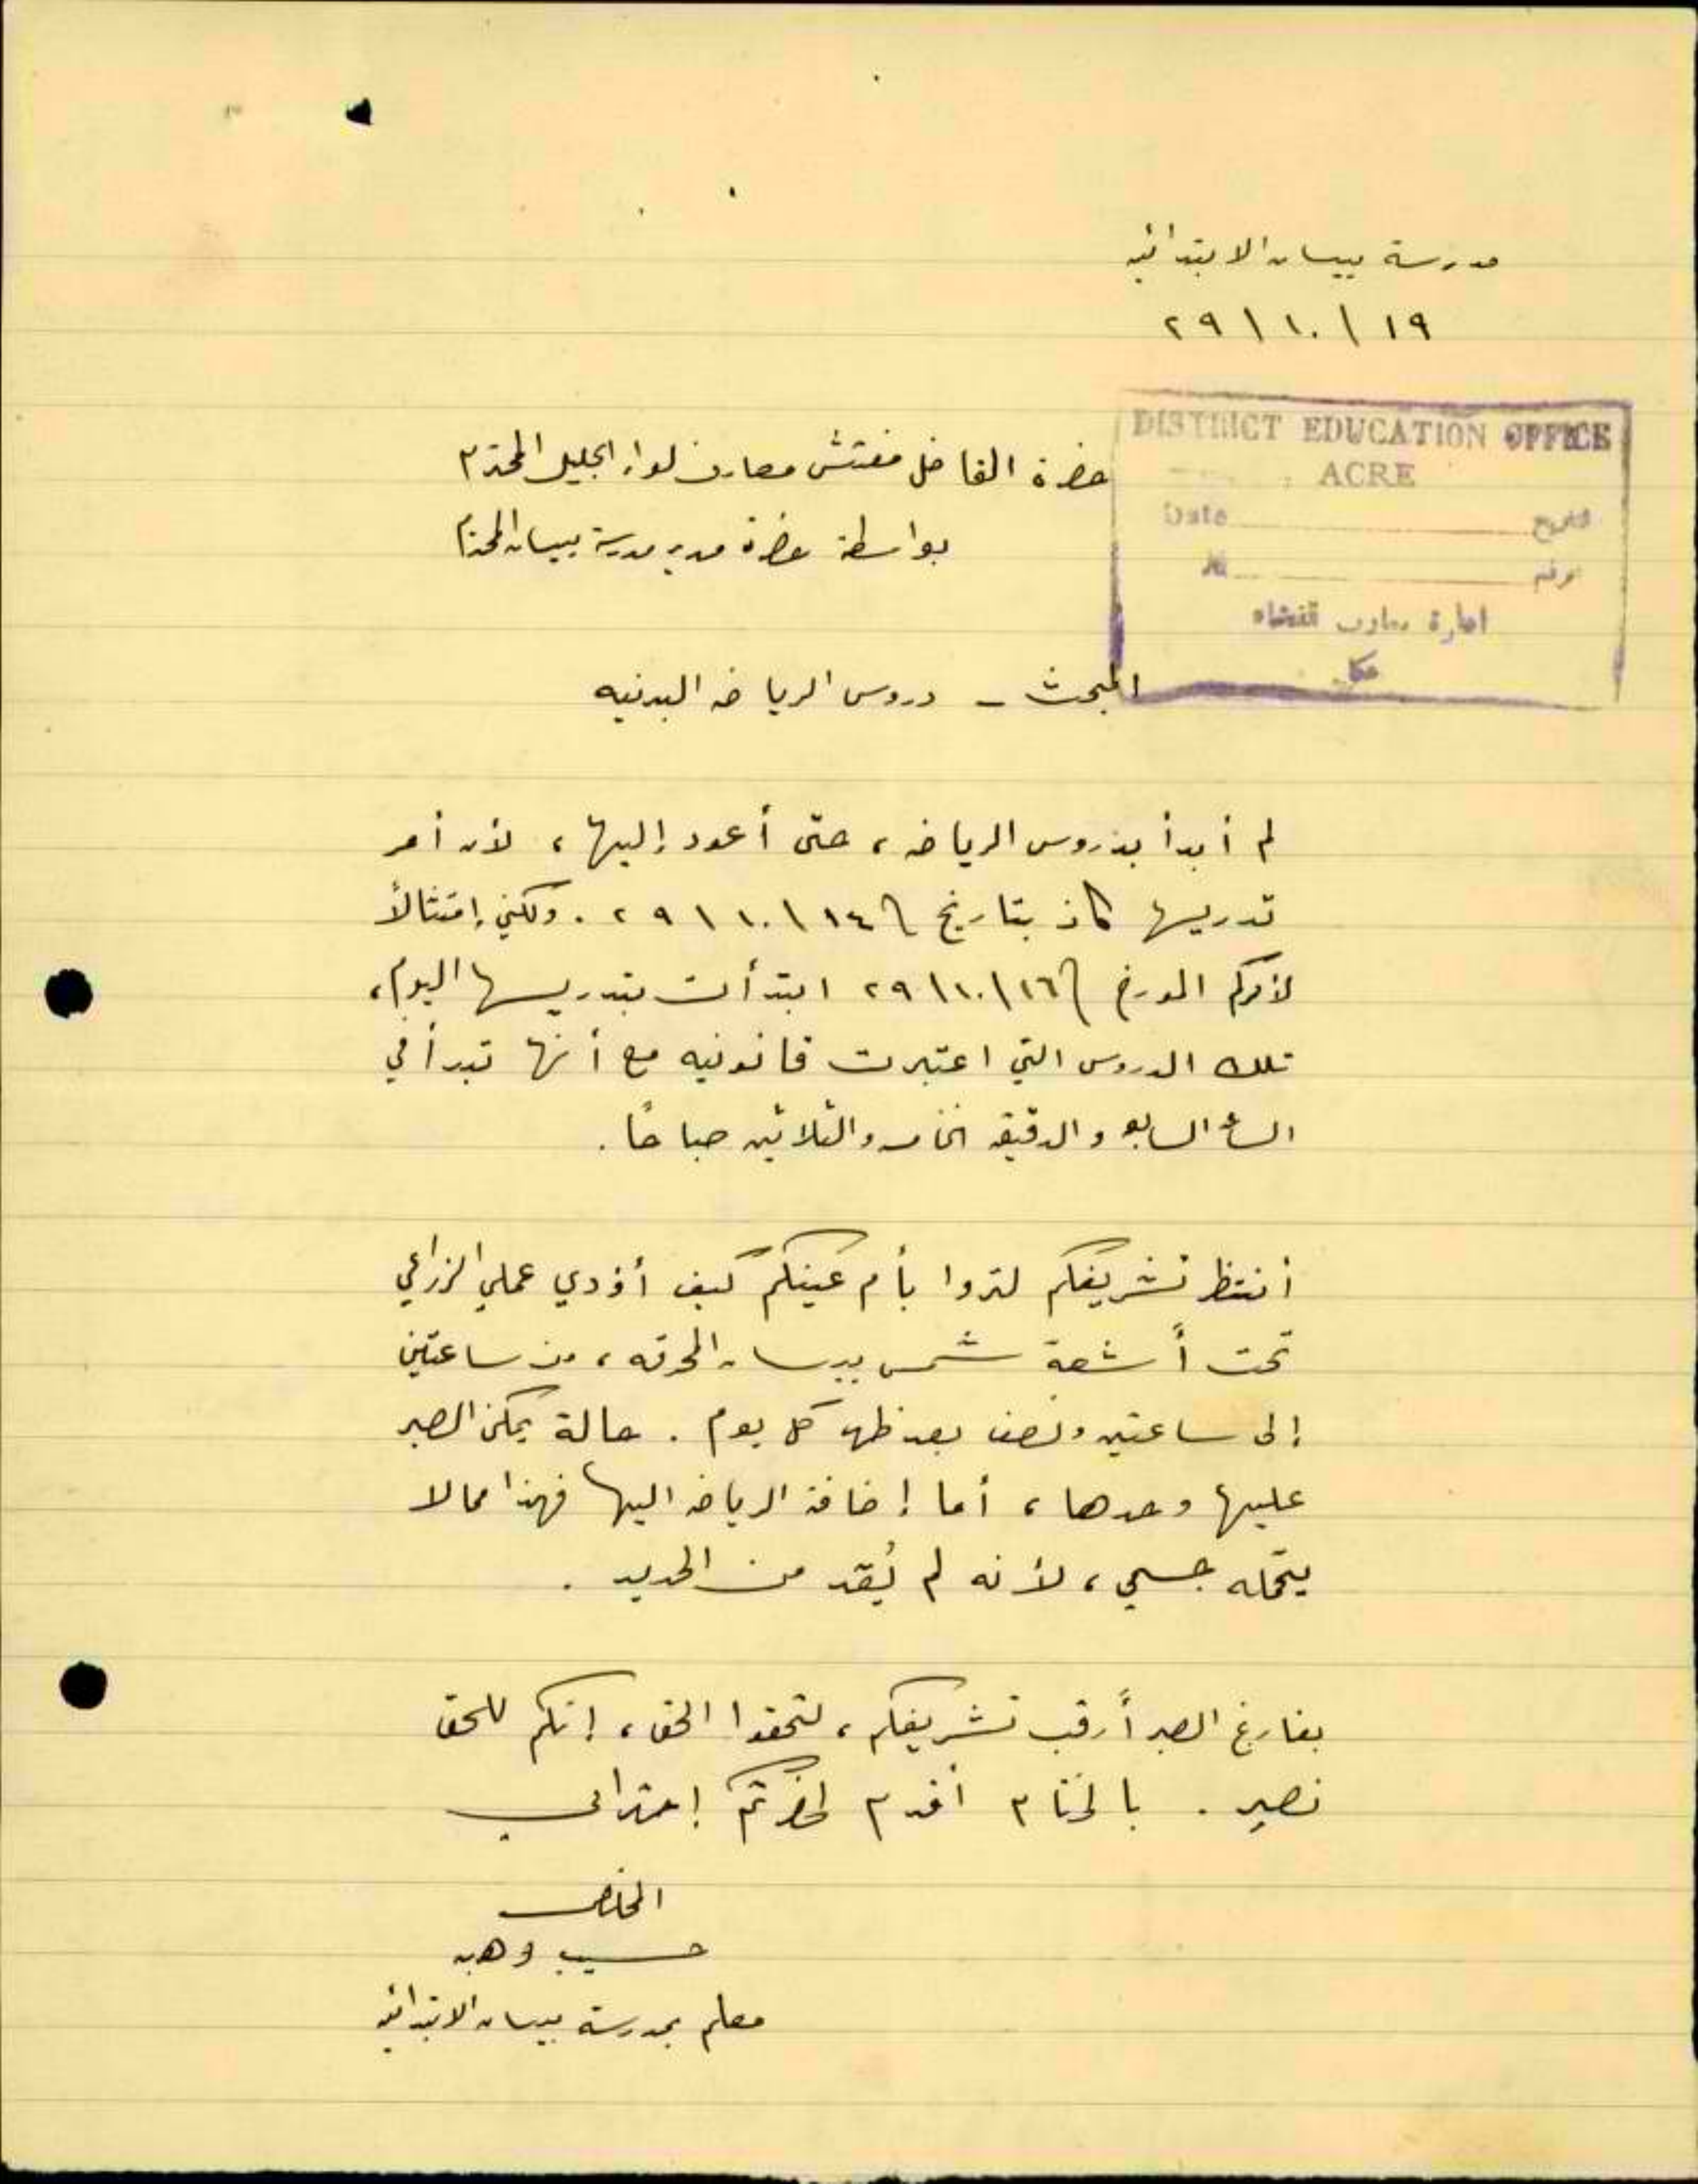 مدرسة بيسان الابتدائيه
١٩ / ١٠ / ٢٩
DISTRICT EDUCATION OFFICE
ACRE
Date التاريخ
No. الرقم
عكا
حضرة الفاضل مفتش معارف لواء الجليل المحترم
بواسطة حضرة مدير مدرسة بيسان المحترم
المبحث – دروس الرياضه البدنيه
لم أبدأ بدروس الرياضه، حتى أعود إليها، لأن أمر
تدريسها كان بتاريخ ١٤ / ١٠ / ٢٩. ولكني إمتثالاً
لأمركم المورخ ١٦ / ١٠ / ٢٩ ابتدأت بتدريسها اليوم،
تلك الدروس التي اعتبرت قانونيه مع أنها تبدأ في
الساعة السابعه والدقيقه الخامسه والثلاثين صباحاً.
أنتظر تشريفكم لتروا بأم عينكم كيف أؤدي عملي الزراعي
تحت أشعة شمس بيسان المحرقه، من ساعتين
إلى ساعتين ونصف بعد ظهر كل يوم. حالة يمكن الصبر
عليها وحدها، أما إضافة الرياضه اليها فهذا مما لا
يتحمله جسمي، لأنه لم يُقد من الحديد.
بفارغ الصبر أرقب تشريفكم، لتحقوا الحق، إنكم للحق
نصير. بالختام أقدم لحضرتكم إحترامي
المخلص
حسيب وهبه
معلم بمدرسة بيسان الابتدائيه